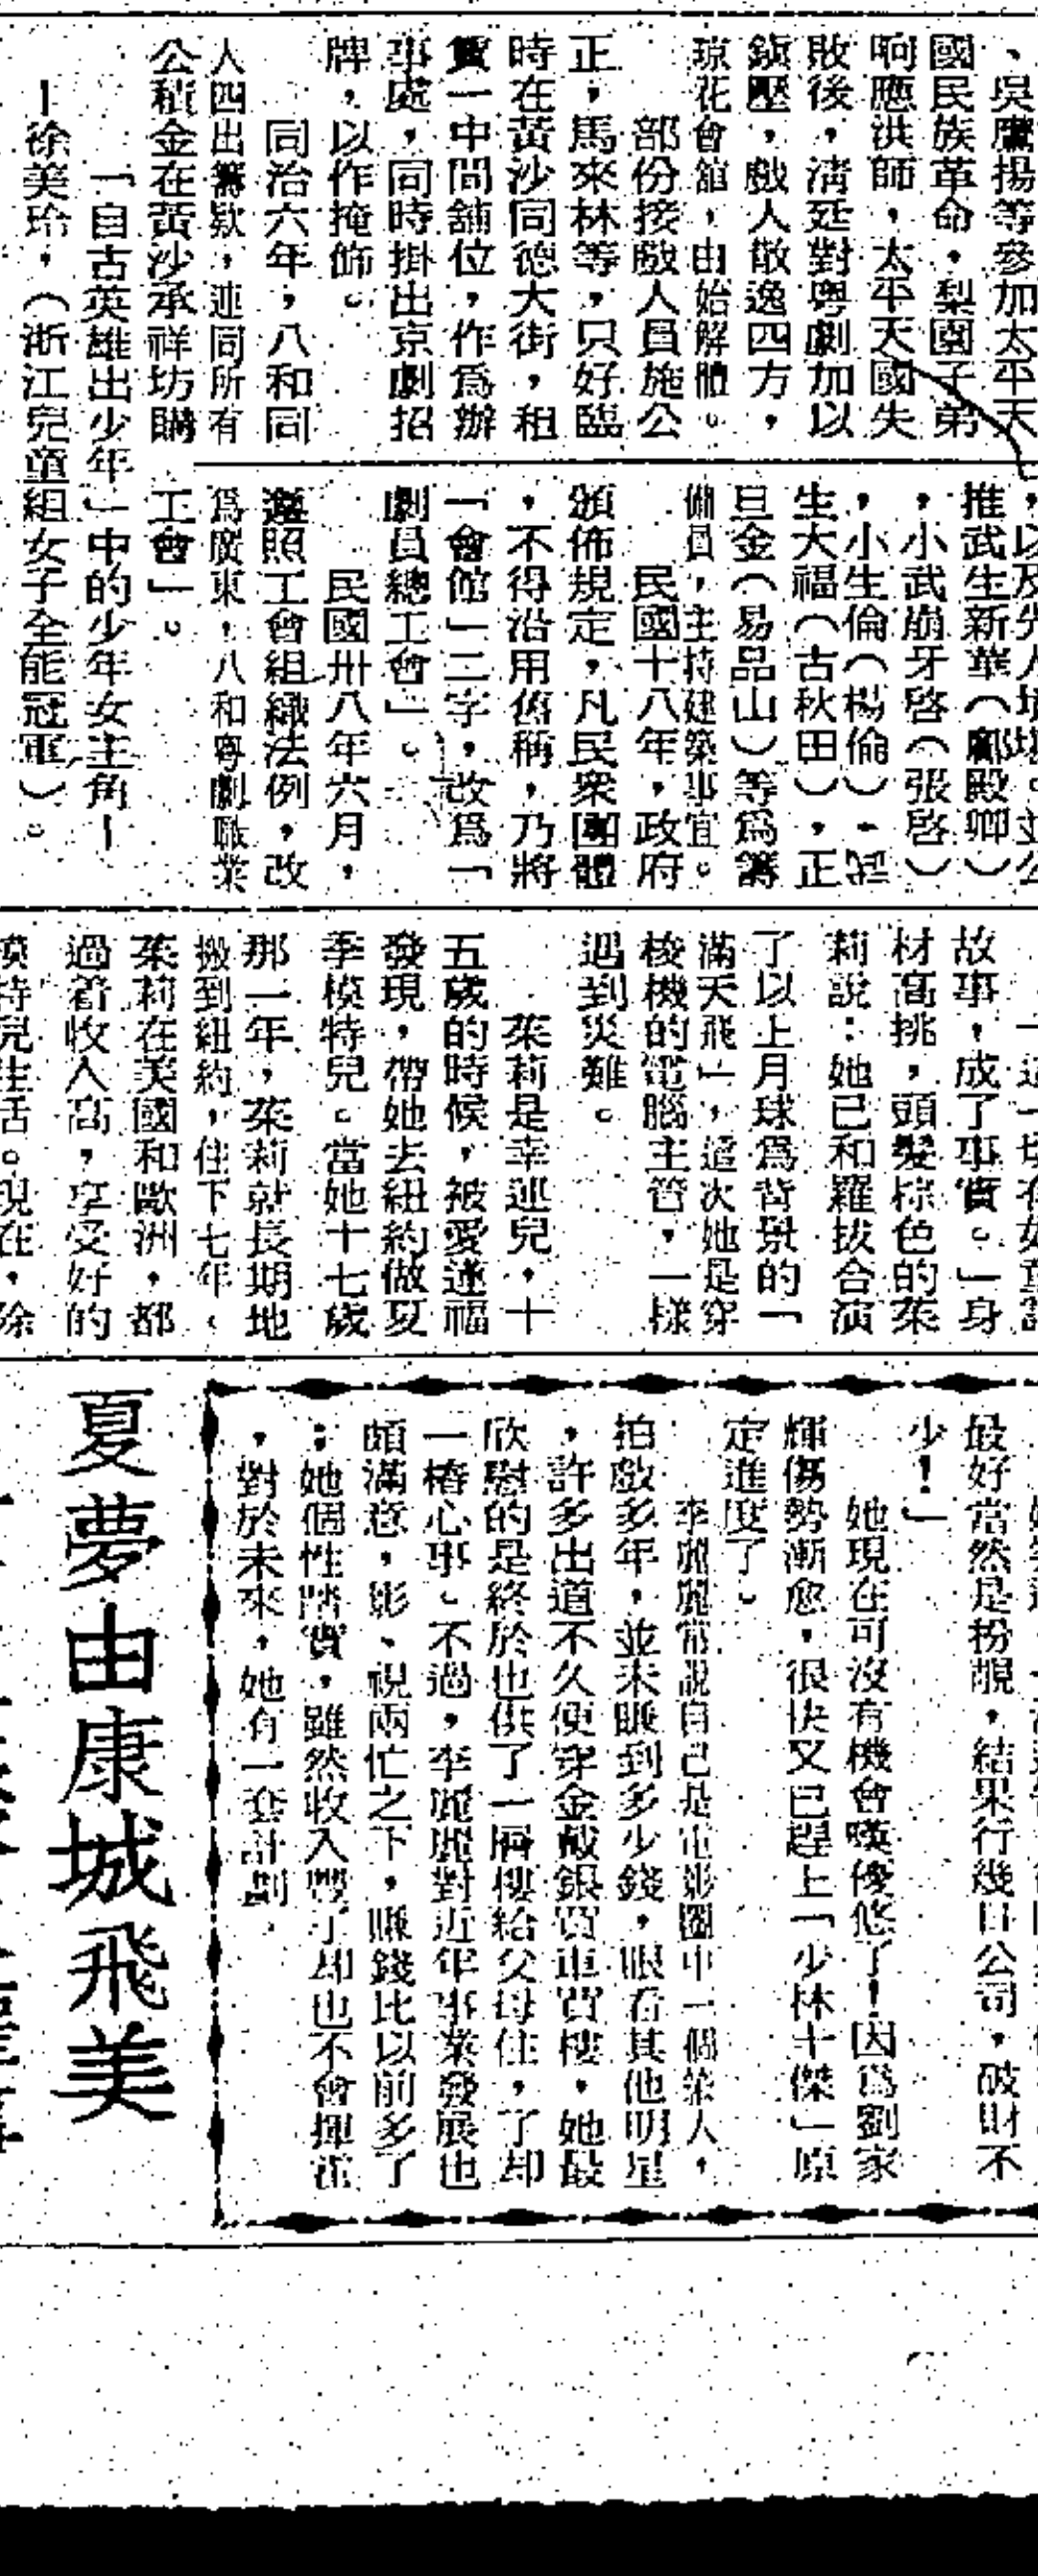 、吳鷹揚等參加太平天
國民族革命，梨園子弟
响應洪師，太平天國失
敗後，淸廷對粤劇加以
鎭壓，戲人散逸四方，
琼花會館，由始解體。
部份接戲人員施公
正，馬來林等，只好臨
時在黃沙同德大街，租
賃一中間舖位，作爲辦
事處，同時掛出京劇招
牌，以作掩飾。
同治六年，八和同
人四出籌欵，連同所有
公積金在黃沙承祥坊購
推武生新華（鄺殿卿）
，小武崩牙啓（張啓）
，小生倫（楊倫）、
生大福（古秋田），正
旦金（易品山）等爲籌
備員，主持建築事宜。
民國十八年，政府
頒佈規定，凡民衆團體
，不得沿用舊稱，乃將
「會館」二字，改爲「
劇員總工會」。
民國卅八年六月，
遵照工會組織法例，改
爲廣東，八和粤劇職業
工會」。
「自古英雄出少年」中的少年女主角—
—徐美玲，（浙江兒童組女子全能冠軍）。
故事，成了事實。」身
材高挑，頭髮棕色的茱
莉說：她已和羅拔合演
了以上月球爲背景的「
滿天飛」，這次她是穿
梭機的電腦主管，一樣
遇到災難。
茱莉是幸運兒，十
五歲的時候，被愛蓮福
發現，帶她去紐約做夏
季模特兒。當她十七歲
那一年，茱莉就長期地
搬到紐約，住下七年。
茱莉在美國和歐洲，都
過着收入高，享受好的
模特兒生活。現在，除
最好當然是扮靚，結果行幾日公司，破財不
少！」
她現在可沒有機會嘆優悠了！因爲劉家
輝傷勢漸愈，很快又已趕上「少林十傑」原
定進度了。
李麗麗常說自己是電影圈中一個菜人，
拍戲多年，並未賺到多少錢，眼看其他明星
，許多出道不久便穿金戴銀買車買樓，她最
欣慰的是終於也供了一層樓給父母住，了却
一樁心事。不過，李麗麗對近年事業發展也
頗滿意，影、視兩忙之下，賺錢比以前多了
；她個性踏實，雖然收入豐了却也不會揮霍
，對於未來，她有一套計劃。
夏夢由康城飛美